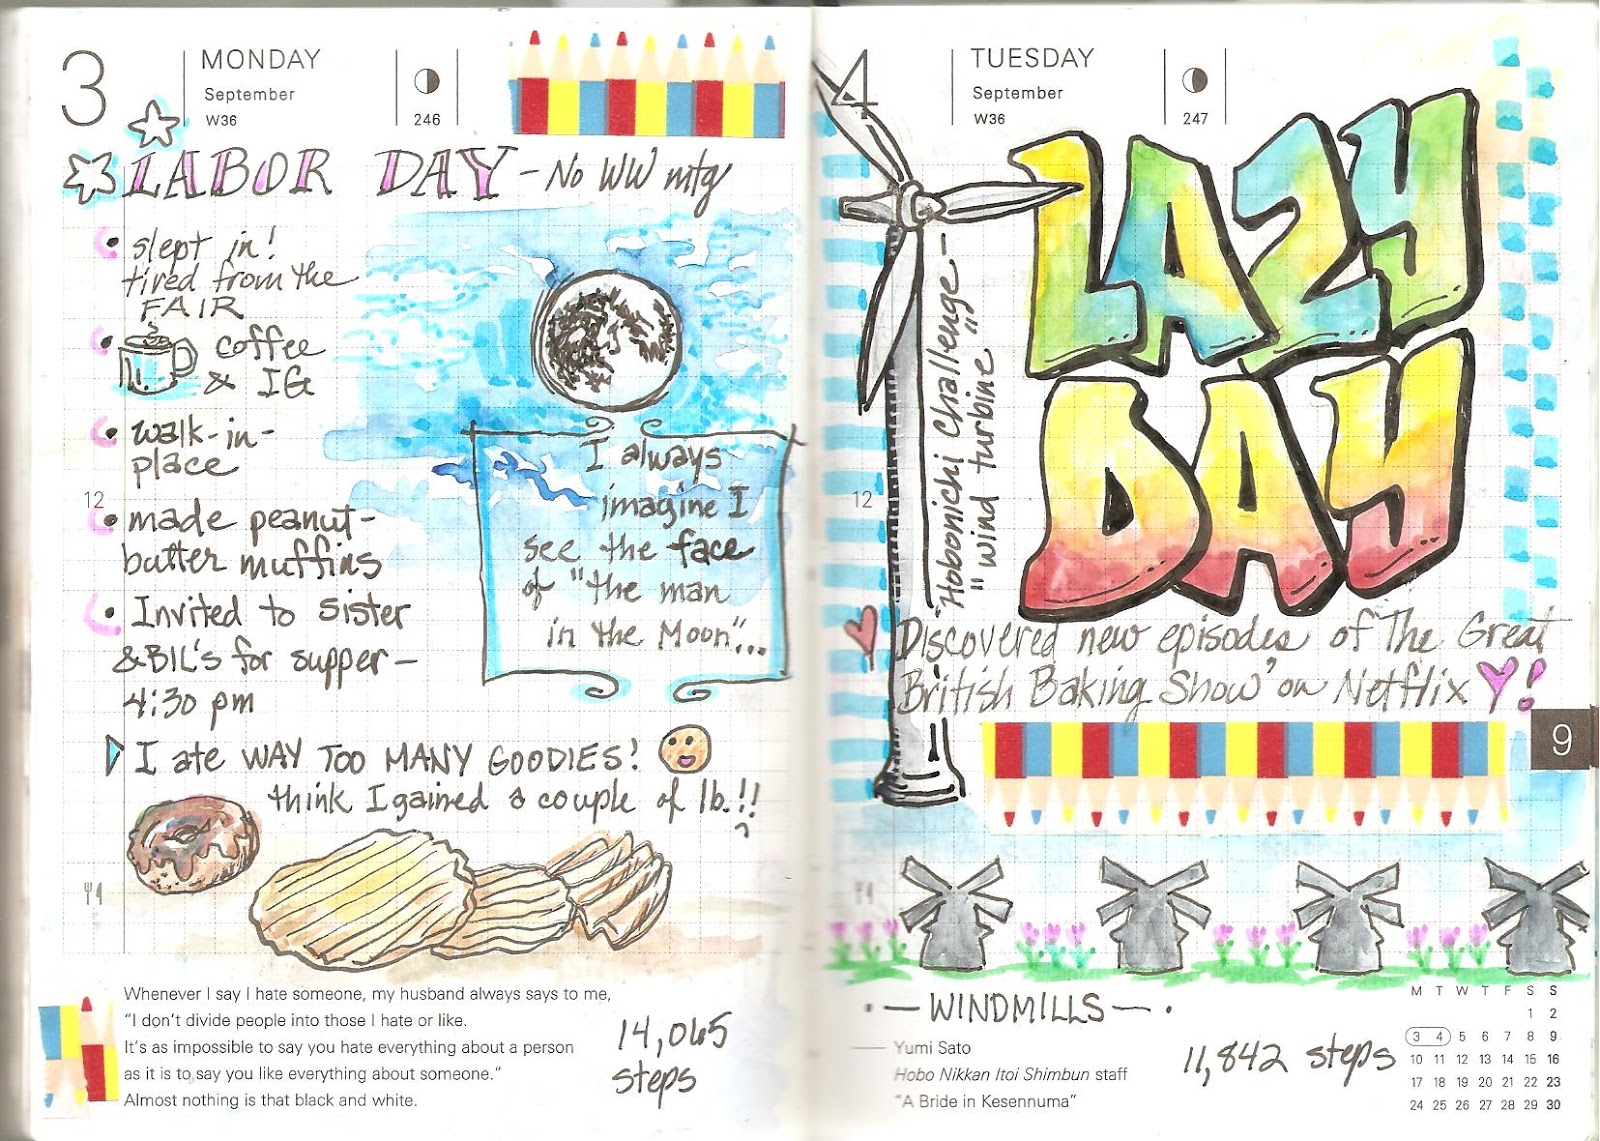 3
MONDAY
September
W36
246
LABOR DAY - No WW mtg
• slept in!
tired from the
FAIR
• coffee
& IG
• walk-in-
place
12
• made peanut-
butter muffins
• Invited to sister
&BIL's for supper-
4:30 pm
I always
imagine I
see the face
of "the man
in the Moon"...
I ate WAY TOO MANY GOODIES!
think I gained a couple of lb.!!
Whenever I say I hate someone, my husband always says to me,
"I don't divide people into those I hate or like.
It's as impossible to say you hate everything about a person
as it is to say you like everything about someone."
Almost nothing is that black and white.
14,065
steps
4
TUESDAY
September
W36
247
LAZY
DAY
Hobonichi Challenge-
"wind turbine"
12
Discovered new episodes of The Great
British Baking Show' on Netflix !
9
•—WINDMILLS—•
Yumi Sato
Hobo Nikkan Itoi Shimbun staff
"A Bride in Kesennuma"
11,842 steps
M T W T F S S
1 2
3 4 5 6 7 8 9
10 11 12 13 14 15 16
17 18 19 20 21 22 23
24 25 26 27 28 29 30